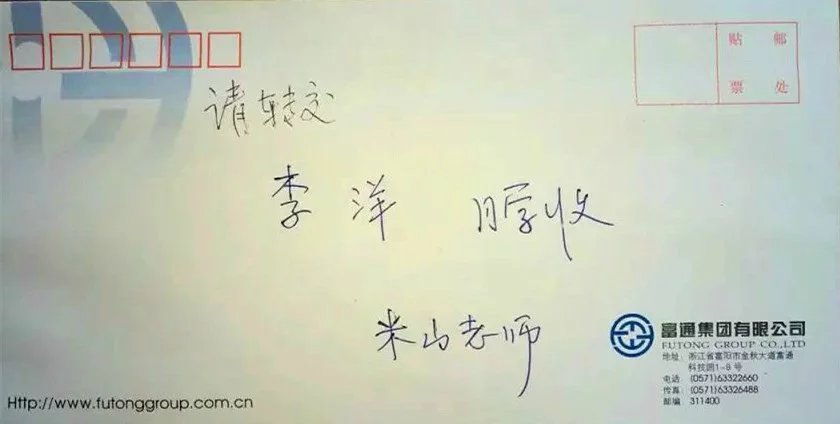 贴 邮
票 处
请转交
李 洋 同学收
米山老师
富通集团有限公司
FUTONG GROUP CO.,LTD
地址: 浙江省富阳市金秋大道富通
科技园1-8号
电话: (0571)63322660
传真: (0571)63326488
邮编: 311400
Http://www.futonggroup.com.cn